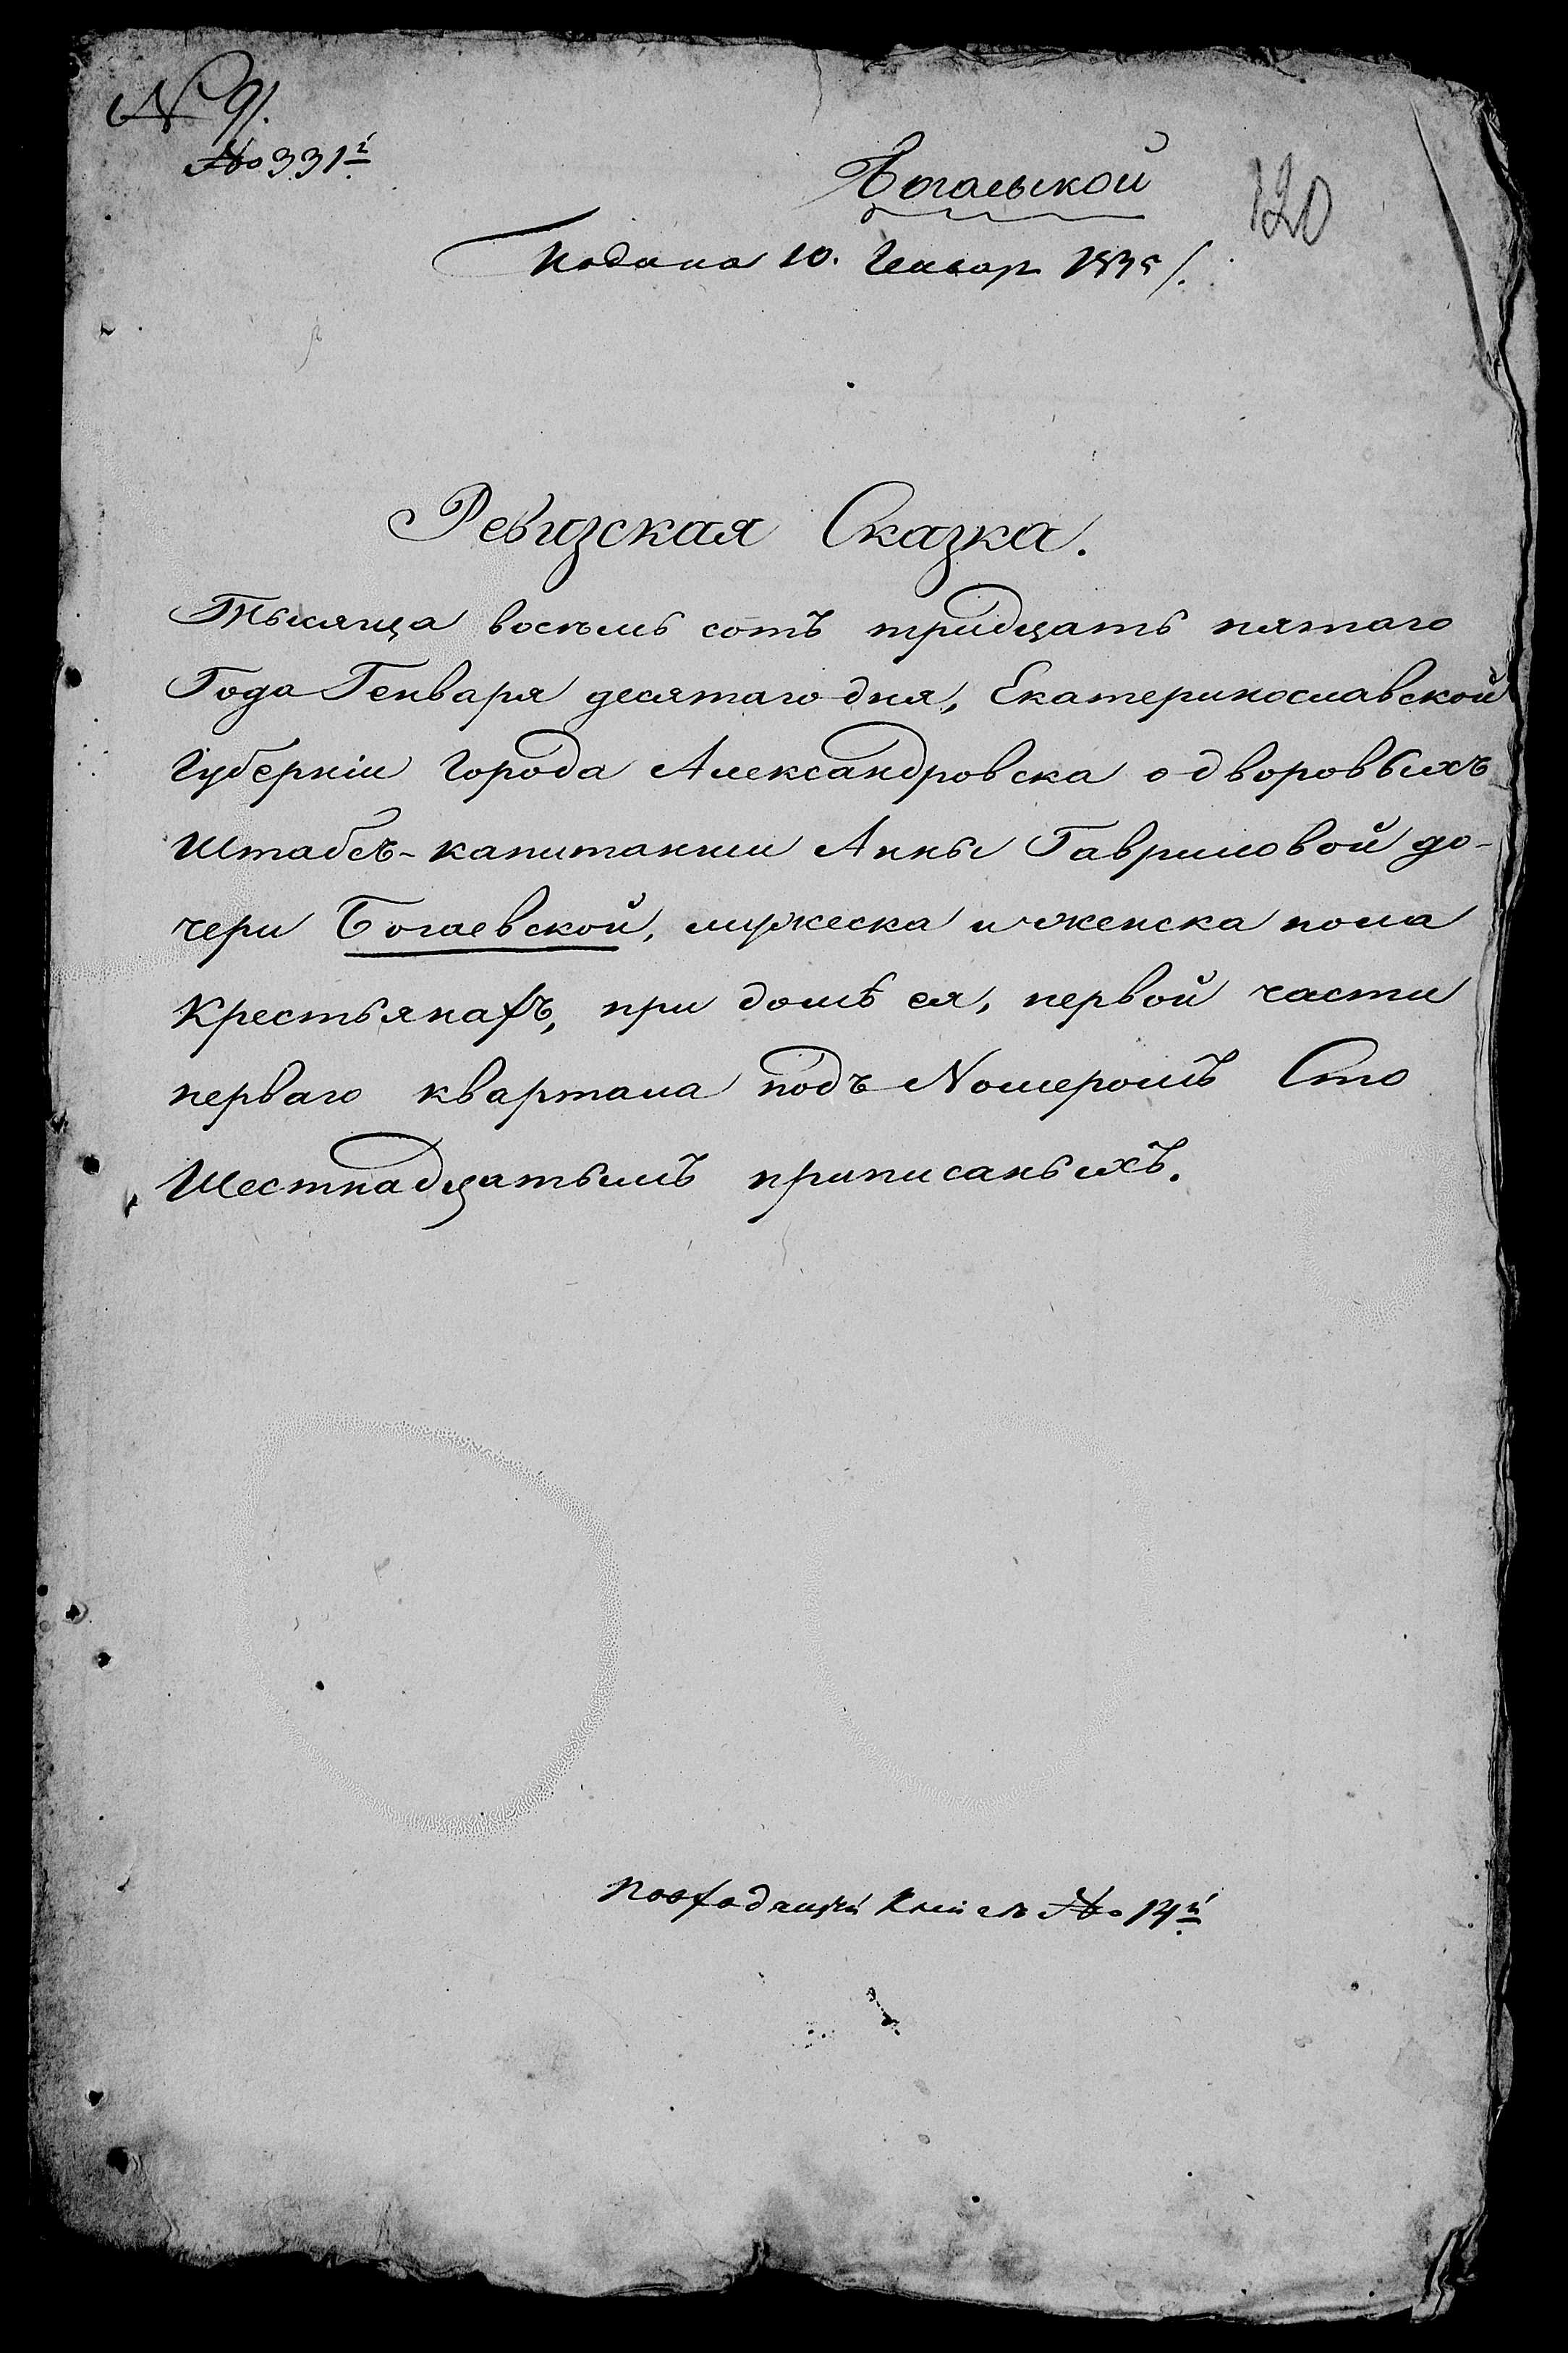 N 91.
№ 331й
Богаевской
120
Подана 10. Генвар 1835/.
Ревизская Сказка.
Тысяща восемь сотъ тридцать пятаго
Года Генваря десятаго дня, Екатеринославской
Губерніи Города Александровска о дворовыхъ
Штабсъ-капитанши Анны Гавриловой до-
чери Богаевской, мужеска и женска пола
Крестьянахъ, при домѣ ея, первой части
перваго квартала подъ Номеромъ Сто
Шестнадцатымъ приписаныхъ.
Книгѣ № 14й